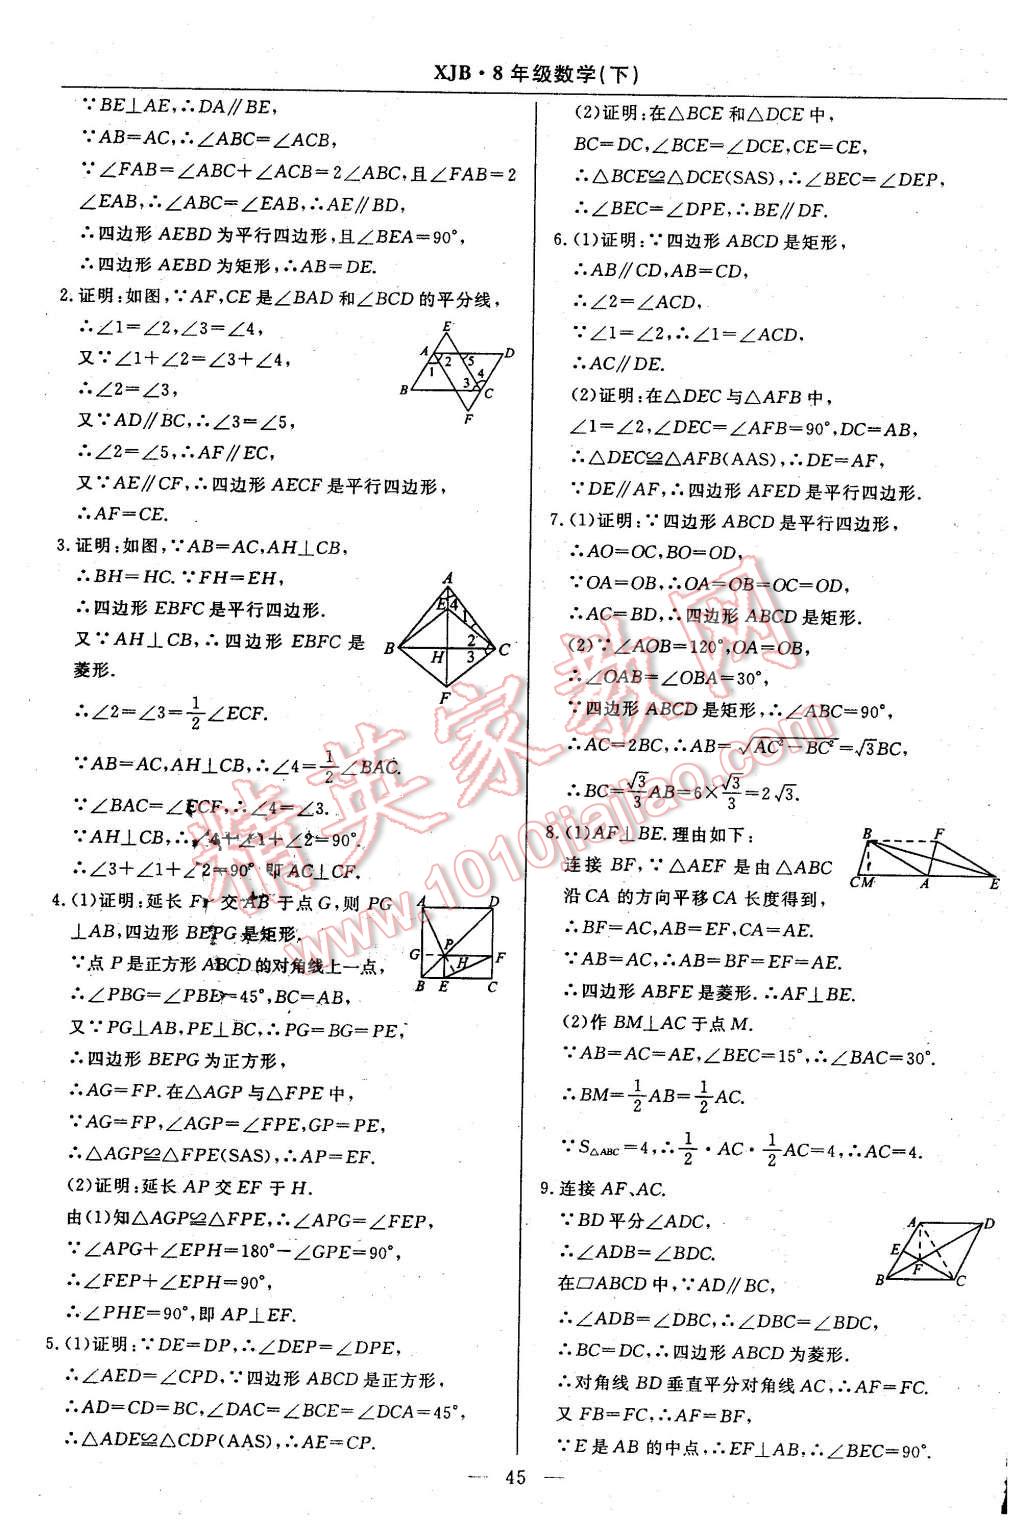 XJB·8年级数学(下)
∵BE⊥AE,∴DA∥BE,
∵AB=AC,∴∠ABC=∠ACB,
∵∠FAB=∠ABC+∠ACB=2∠ABC,且∠FAB=2
∠EAB,∴∠ABC=∠EAB,∴AE∥BD,
∴四边形AEBD为平行四边形,且∠BEA=90°,
∴四边形AEBD为矩形,∴AB=DE.
2.证明:如图,∵AF,CE是∠BAD和∠BCD的平分线,
∴∠1=∠2,∠3=∠4,
又∵∠1+∠2=∠3+∠4,
∴∠2=∠3,
又∵AD∥BC,∴∠3=∠5,
∴∠2=∠5,∴AF∥EC,
又∵AE∥CF,∴四边形AECF是平行四边形,
∴AF=CE.
E
A 2 5 D
1 4
B 3 C
F
3.证明:如图,∵AB=AC,AH⊥CB,
∴BH=HC.∵FH=EH,
∴四边形EBFC是平行四边形.
又∵AH⊥CB,∴四边形EBFC是
菱形.
∴∠2=∠3=1/2∠ECF.
∵AB=AC,AH⊥CB,∴∠4=1/2∠BAC.
∵∠BAC=∠ECF,∴∠4=∠3.
∵AH⊥CB,∴∠4+∠1+∠2=90°.
∴∠3+∠1+∠2=90°即AC⊥CF.
A
E 4 1
B 2 C
H 3
F
4.(1)证明:延长FP交AB于点G,则PG
⊥AB,四边形BEPG是矩形.
∵点P是正方形ABCD的对角线上一点,
∴∠PBG=∠PBE=45°,BC=AB,
又∵PG⊥AB,PE⊥BC,∴PG=BG=PE,
∴四边形BEPG为正方形,
∴AG=FP.在△AGP与△FPE中,
∵AG=FP,∠AGP=∠FPE,GP=PE,
∴△AGP≌△FPE(SAS),∴AP=EF.
(2)证明:延长AP交EF于H.
由(1)知△AGP≌△FPE,∴∠APG=∠FEP,
∵∠APG+∠EPH=180°-∠GPE=90°,
∴∠FEP+∠EPH=90°,
∴∠PHE=90°,即AP⊥EF.
A D
P
G H F
B E C
5.(1)证明:∵DE=DP,∴∠DEP=∠DPE,
∴∠AED=∠CPD,∵四边形ABCD是正方形,
∴AD=CD=BC,∠DAC=∠BCE=∠DCA=45°,
∴△ADE≌△CDP(AAS),∴AE=CP.
(2)证明:在△BCE和△DCE中,
BC=DC,∠BCE=∠DCE,CE=CE,
∴△BCE≌△DCE(SAS),∴∠BEC=∠DEP,
∴∠BEC=∠DPE,∴BE∥DF.
6.(1)证明:∵四边形ABCD是矩形,
∴AB∥CD,AB=CD,
∴∠2=∠ACD,
∵∠1=∠2,∴∠1=∠ACD,
∴AC∥DE.
(2)证明:在△DEC与△AFB中,
∠1=∠2,∠DEC=∠AFB=90°,DC=AB,
∴△DEC≌△AFB(AAS),∴DE=AF,
∵DE∥AF,∴四边形AFED是平行四边形.
7.(1)证明:∵四边形ABCD是平行四边形,
∴AO=OC,BO=OD,
∵OA=OB,∴OA=OB=OC=OD,
∴AC=BD,∴四边形ABCD是矩形.
(2)∵∠AOB=120°,OA=OB,
∴∠OAB=∠OBA=30°,
∵四边形ABCD是矩形,∴∠ABC=90°,
∴AC=2BC,∴AB=√(AC²-BC²)=√3BC,
∴BC=√3/3AB=6×√3/3=2√3.
8.(1)AF⊥BE.理由如下:
连接BF,∵△AEF是由△ABC
沿CA的方向平移CA长度得到,
∴BF=AC,AB=EF,CA=AE.
∵AB=AC,∴AB=BF=EF=AE.
∴四边形ABFE是菱形.∴AF⊥BE.
(2)作BM⊥AC于点M.
∵AB=AC=AE,∠BEC=15°,∴∠BAC=30°.
∴BM=1/2AB=1/2AC.
∵S△ABC=4,∴1/2·AC·1/2AC=4,∴AC=4.
B F
CM A E
9.连接AF、AC.
∵BD平分∠ADC,
∴∠ADB=∠BDC.
在▱ABCD中,∵AD∥BC,
∴∠ADB=∠DBC,∴∠DBC=∠BDC,
∴BC=DC,∴四边形ABCD为菱形.
∴对角线BD垂直平分对角线AC,∴AF=FC.
又FB=FC,∴AF=BF,
∵E是AB的中点,∴EF⊥AB,∴∠BEC=90°.
A D
E
F
B C
精英家教网
www.1010jiajiao.com
— 45 —